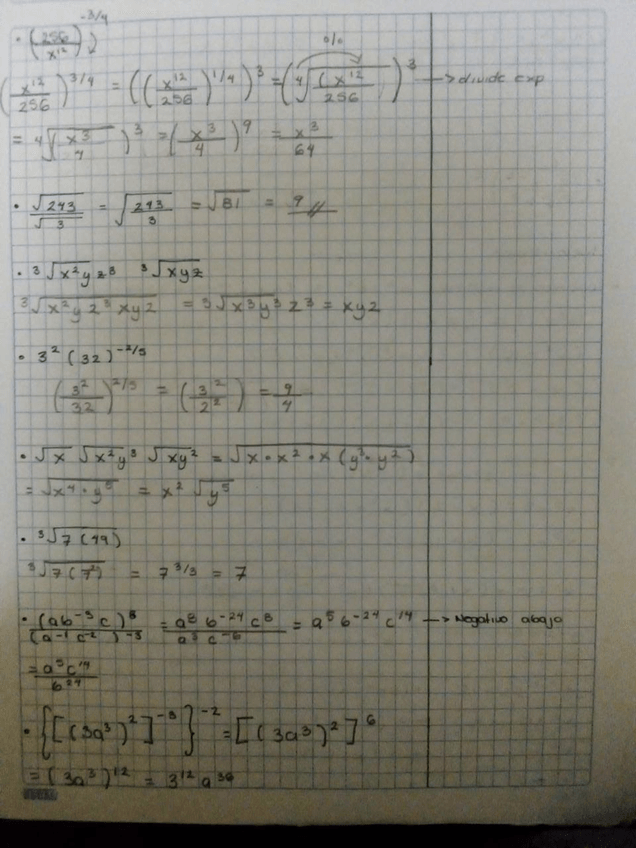 • (256/x¹²)^-3/4
(x¹²/256)^3/4 = ((x¹²/256)^1/4)³ = (⁴√(x¹²/256))³ → divide exp
= ⁴√(x³/4)³ = (x³/4)⁹ = x³/64
• √243/√3 = √(243/3) = √81 = 9
• ³√x²yz³ ³√xyz
³√x²yz³xyz = ³√x³y³z³ = xyz
• 3²(32)^-2/5
(3²/32)^2/5 = (3²/2²) = 9/4
• √x √x²y³ √xy² = √x•x²•x(y³•y²)
= √x⁴•y⁵ = x²√y⁵
• ³√7(49)
³√7(7²) = 7^3/3 = 7
• (ab⁻³c)⁸/(a⁻¹c⁻²)⁻³ = a⁸b⁻²⁴c⁸/a³c⁻⁶ = a⁵b⁻²⁴c¹⁴ → Negativo abajo
= a⁵c¹⁴/b²⁴
• {[(3a³)²]⁻³}⁻² = [(3a³)²]⁶
= (3a³)¹² = 3¹²a³⁶